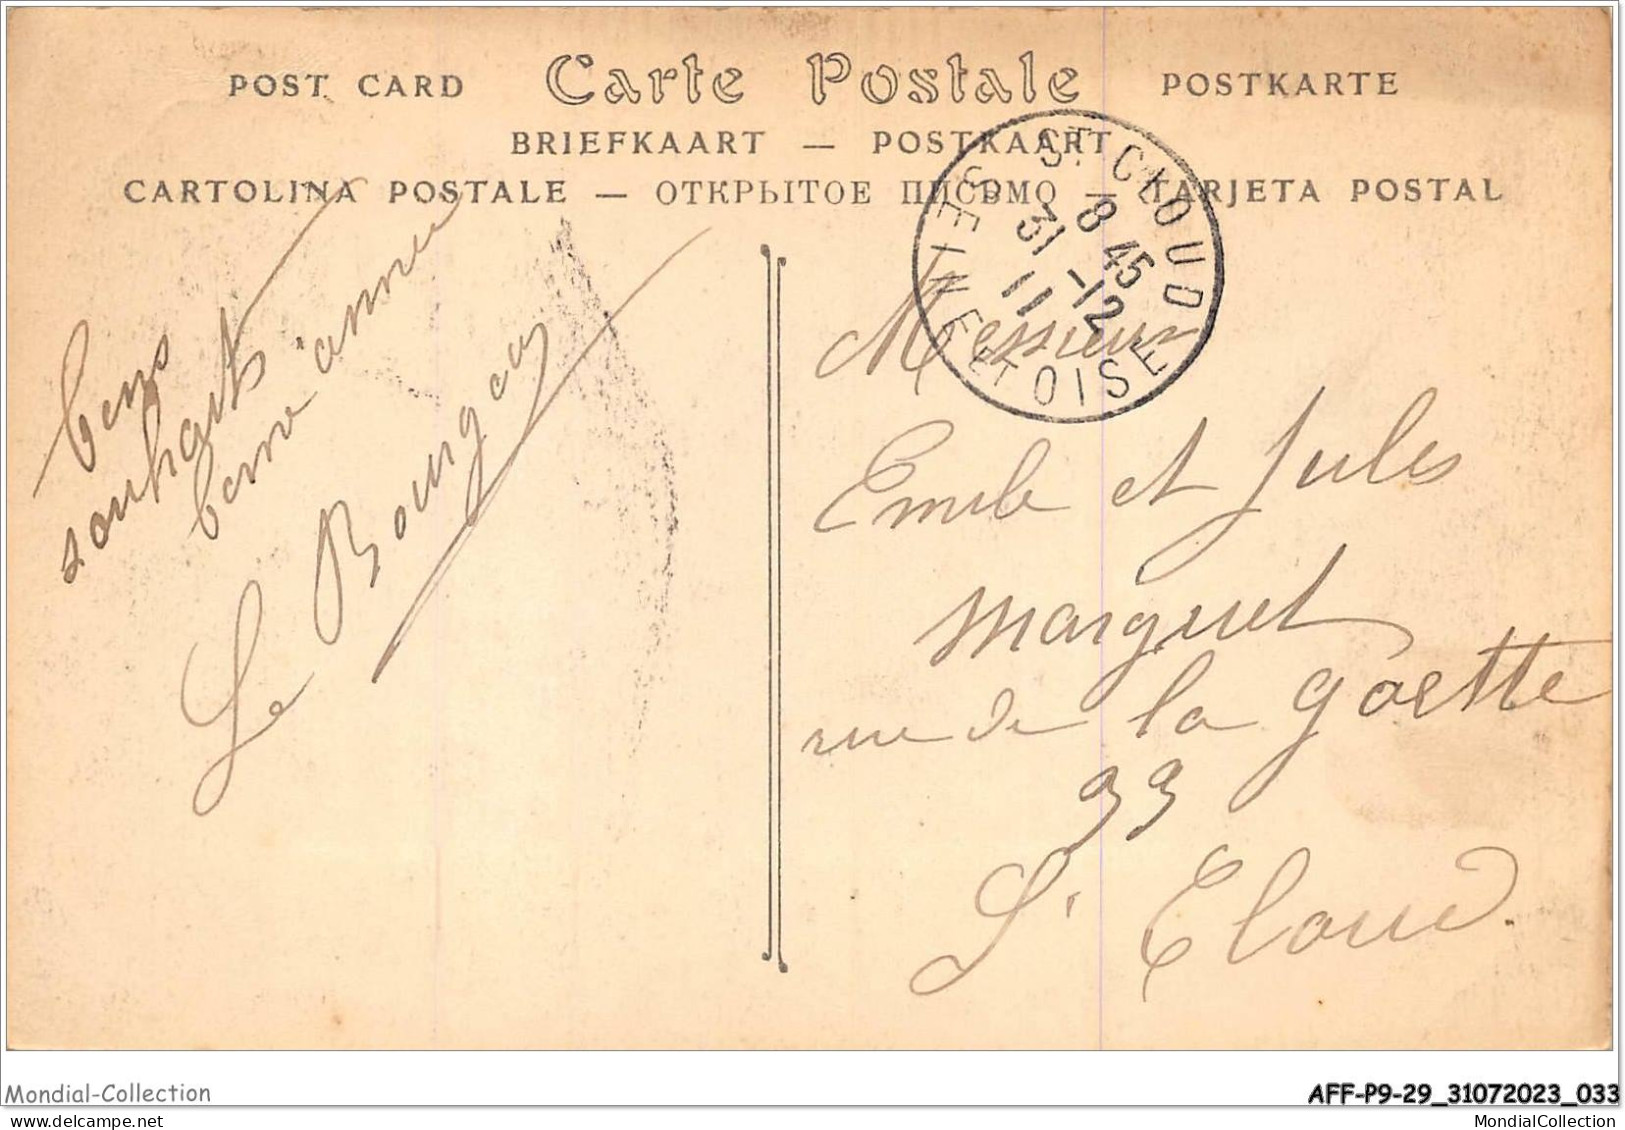 POST CARD Carte Postale POSTKARTE
BRIEFKAART — POSTKAART
CARTOLINA POSTALE — ОТКРЫТОЕ ПИСЬМО — TARJETA POSTAL
ST CLOUD
8 45
31 -12
11
SEINE ET OISE
bons
souhaits
bonne année
Le Bourgeois
Messieurs
Emile et Jules
Marguet
rue de la Gaette
33
St Cloud.
Mondial-Collection
AFF-P9-29_31072023_033
MondialCollection